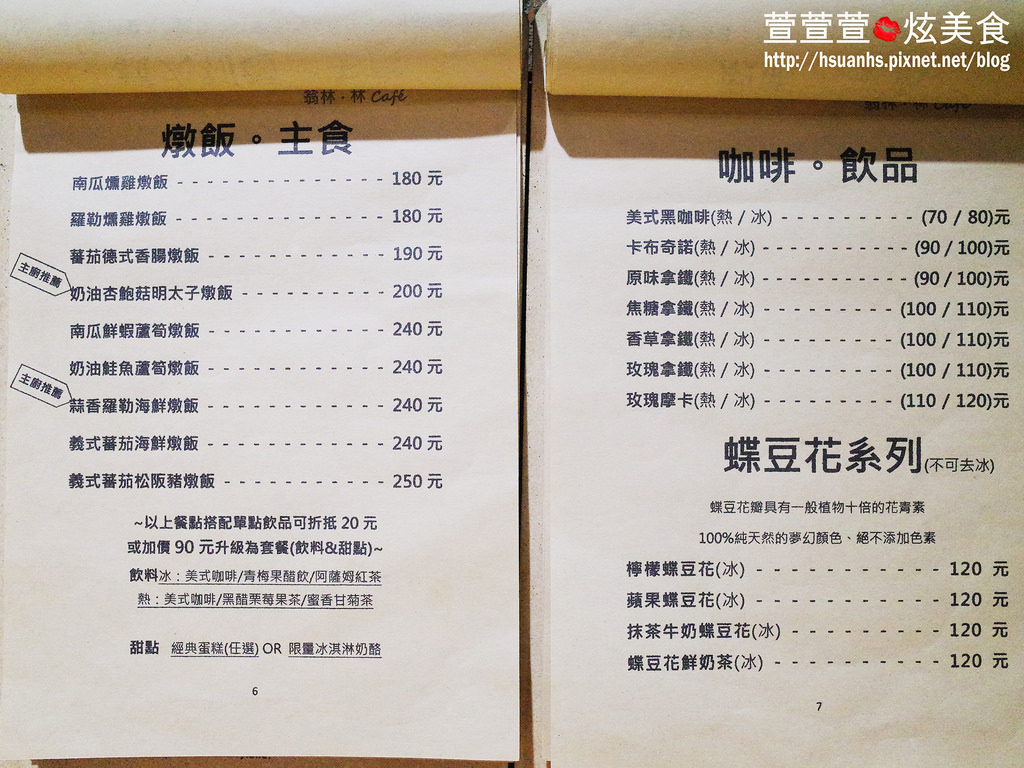 萱萱萱 炫美食
http://hsuanhs.pixnet.net/blog
翁林·林 Café
燉飯。主食
南瓜燻雞燉飯 - - - - - - - - - - - - - - 180 元
羅勒燻雞燉飯 - - - - - - - - - - - - - - 180 元
蕃茄德式香腸燉飯 - - - - - - - - - - - - 190 元
主廚推薦
奶油杏鮑菇明太子燉飯 - - - - - - - - - - 200 元
南瓜鮮蝦蘆筍燉飯 - - - - - - - - - - - - 240 元
奶油鮭魚蘆筍燉飯 - - - - - - - - - - - - 240 元
主廚推薦
蒜香羅勒海鮮燉飯 - - - - - - - - - - - - 240 元
義式蕃茄海鮮燉飯 - - - - - - - - - - - - 240 元
義式蕃茄松阪豬燉飯 - - - - - - - - - - - 250 元
~以上餐點搭配單點飲品可折抵 20 元
或加價 90 元升級為套餐(飲料&甜點)~
飲料冰：美式咖啡/青梅果醋飲/阿薩姆紅茶
熱：美式咖啡/黑醋栗莓果茶/蜜香甘菊茶
甜點 經典蛋糕(任選) OR 限量冰淇淋奶酪
6
翁林·林 Café
咖啡。飲品
美式黑咖啡(熱 / 冰) - - - - - - - - - (70 / 80)元
卡布奇諾(熱 / 冰) - - - - - - - - - - (90 / 100)元
原味拿鐵(熱 / 冰) - - - - - - - - - - (90 / 100)元
焦糖拿鐵(熱 / 冰) - - - - - - - - - (100 / 110)元
香草拿鐵(熱 / 冰) - - - - - - - - - (100 / 110)元
玫瑰拿鐵(熱 / 冰) - - - - - - - - - (100 / 110)元
玫瑰摩卡(熱 / 冰) - - - - - - - - - (110 / 120)元
蝶豆花系列(不可去冰)
蝶豆花瓣具有一般植物十倍的花青素
100%純天然的夢幻顏色、絕不添加色素
檸檬蝶豆花(冰) - - - - - - - - - - - - - 120 元
蘋果蝶豆花(冰) - - - - - - - - - - - - - 120 元
抹茶牛奶蝶豆花(冰) - - - - - - - - - - 120 元
蝶豆花鮮奶茶(冰) - - - - - - - - - - - 120 元
7